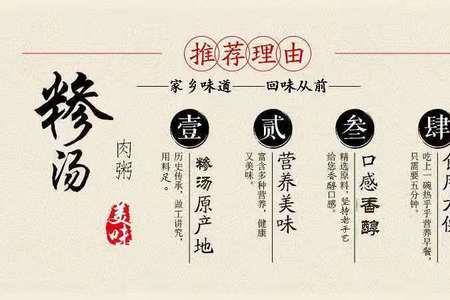 推荐理由
家乡味道——回味从前
糁汤
肉粥
美味
壹
糁汤原产地
历史传承，做工讲究，
用料足。
贰
营养美味
富含多种营养，健康
又美味。
叁
口感香醇
精选原料，坚持老手艺
给您香醇口感。
肆
食用方便
吃上一碗热乎乎营养早餐，
只需要五分钟。